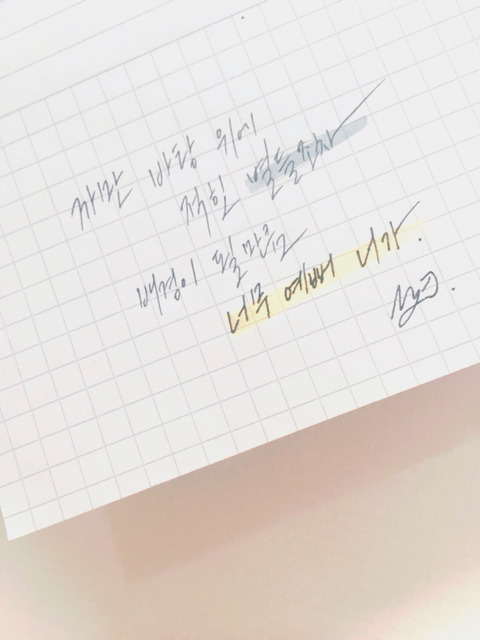 까만 바탕 위에
적힌 별들조차
배경이 될 만큼
너무 예뻐 너가.